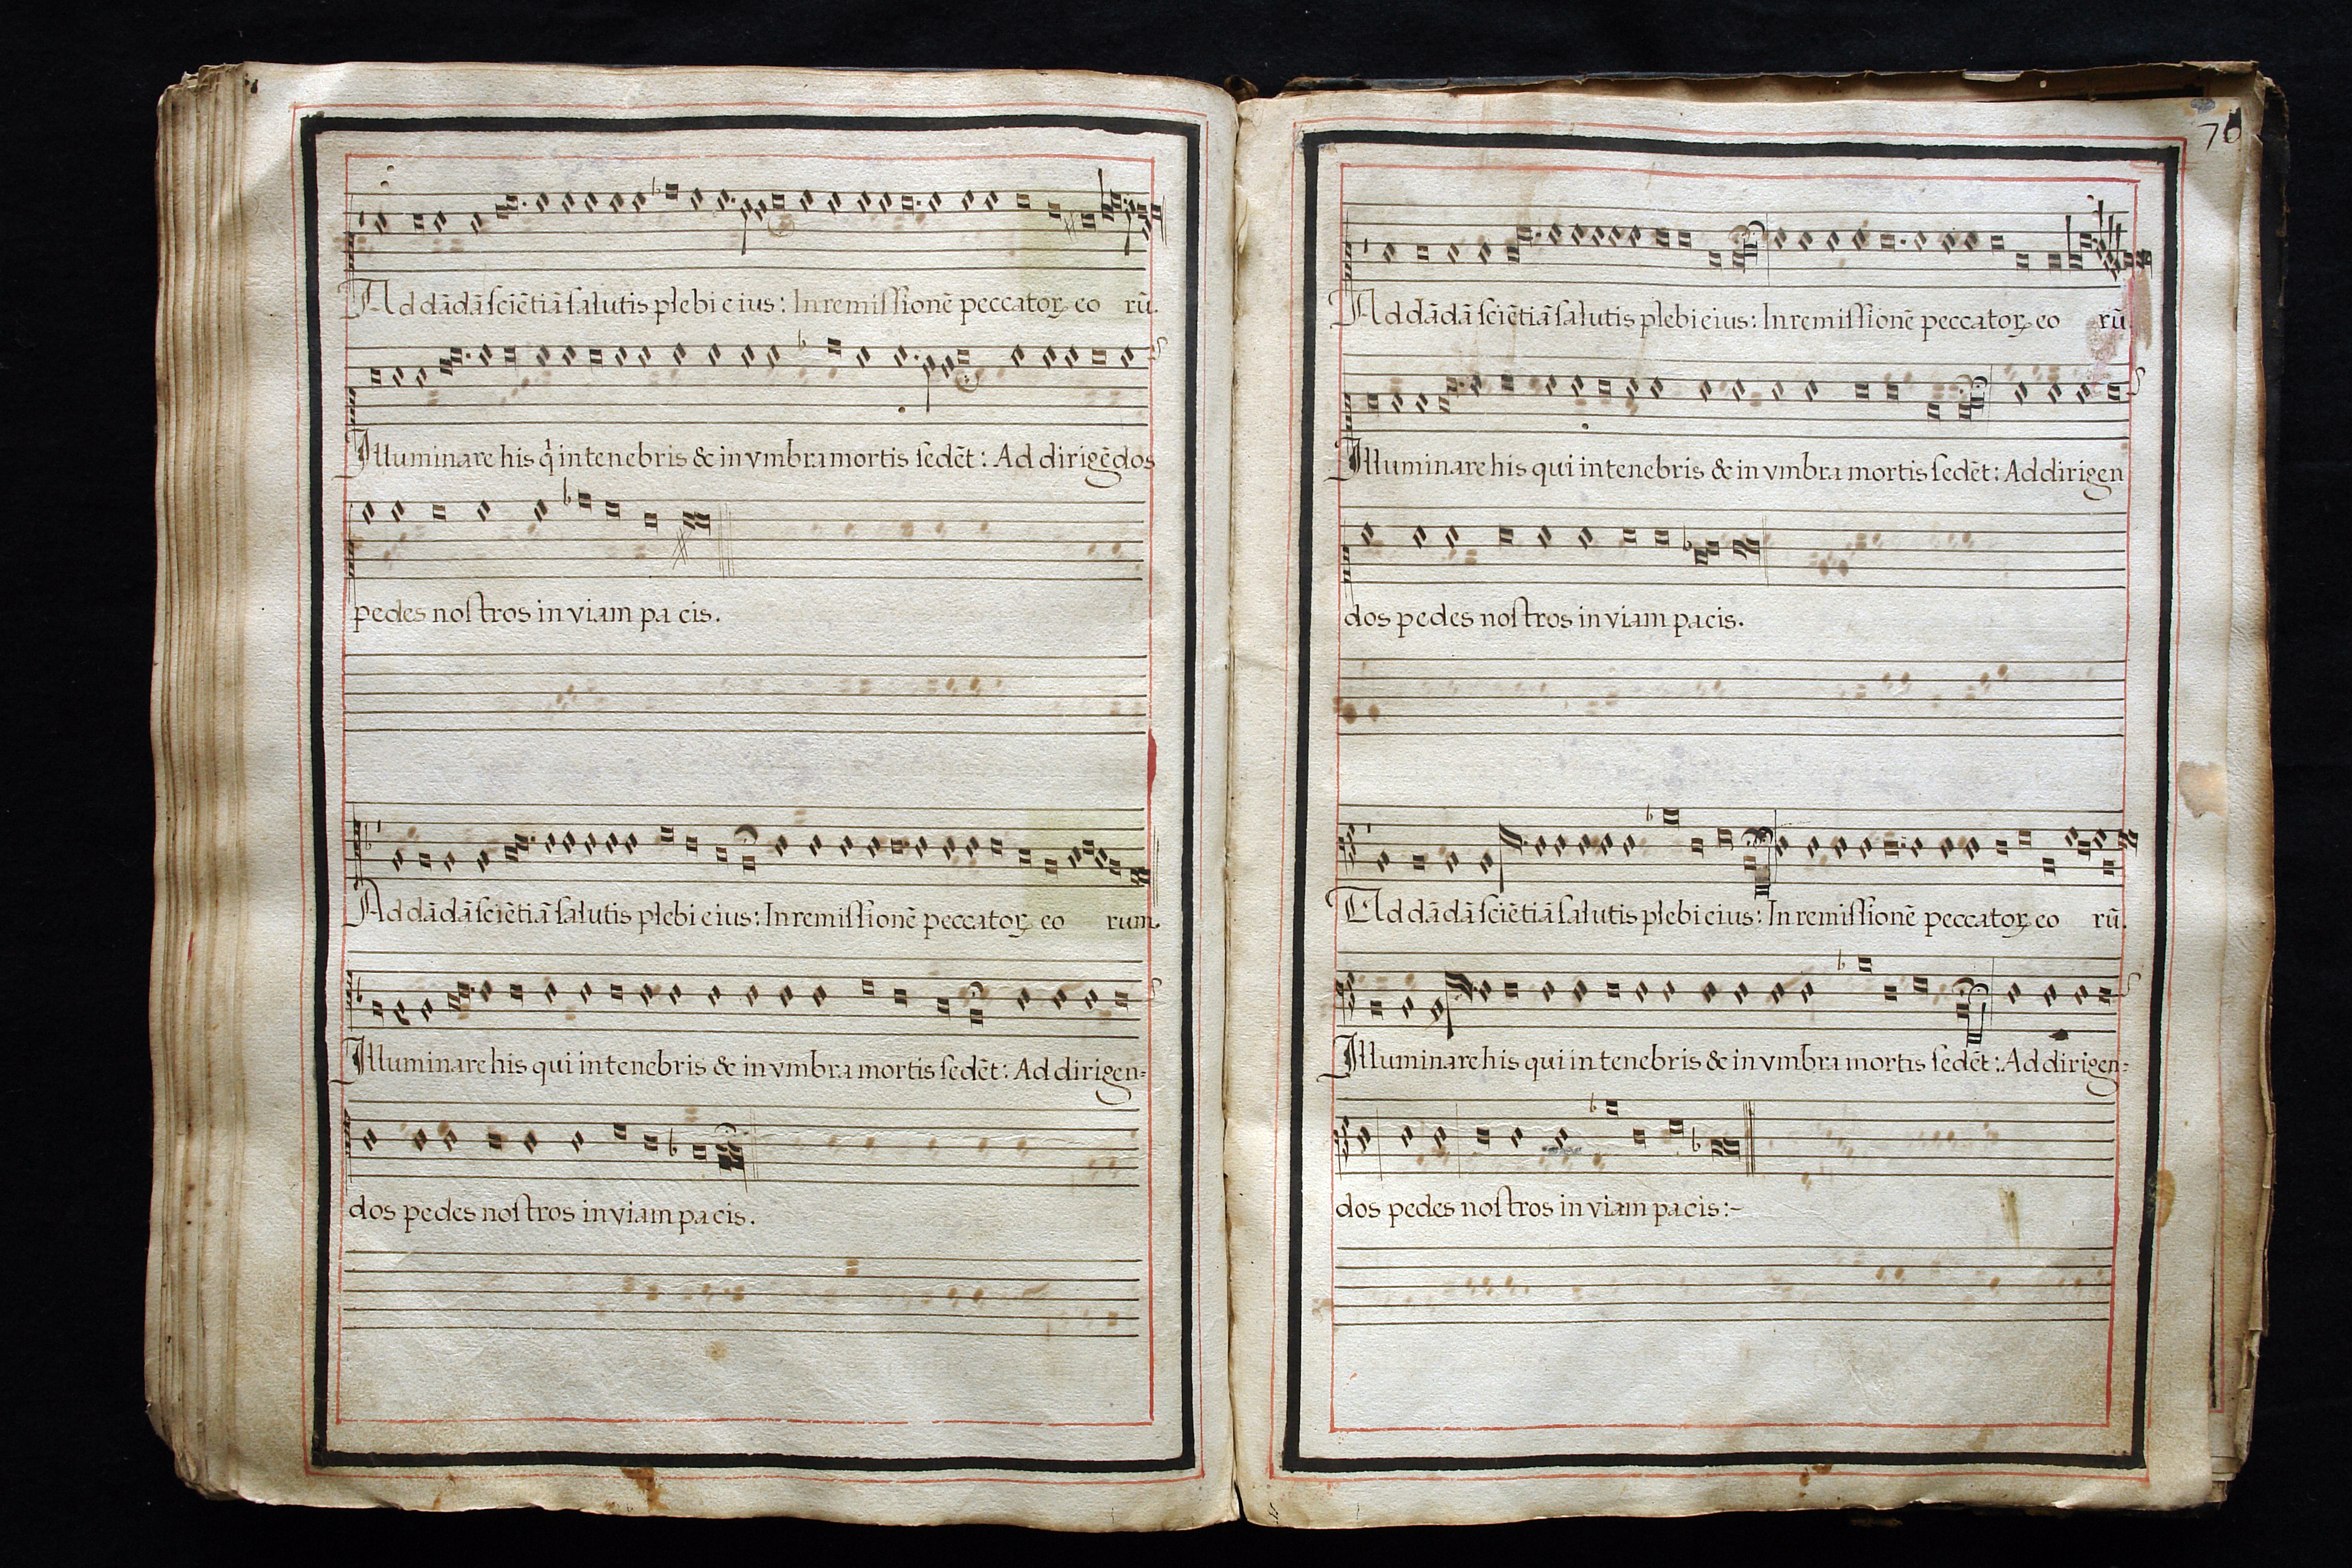 Ad dādā sciētiā salutis plebi eius: In remissionē peccatoꝝ eo rū.
Illuminare his q̍ in tenebris & in vmbra mortis sedēt: Ad dirigēdos
pedes nostros in viam pa cis.
Ad dādā sciētiā salutis plebi eius: In remissionē peccatoꝝ eo rum.
Illuminare his qui in tenebris & in vmbra mortis sedēt: Ad dirigen=
dos pedes nostros in viam pacis.
70
Ad dādā sciētiā salutis plebi eius: In remissionē peccatoꝝ eo rū.
Illuminare his qui in tenebris & in vmbra mortis sedēt: Ad dirigen
dos pedes nostros in viam pacis.
Ad dādā sciētiā salutis plebi eius: In remissionē peccatoꝝ eo rū.
Illuminare his qui in tenebris & in vmbra mortis sedēt: Ad dirigen=
dos pedes nostros in viam pacis:~